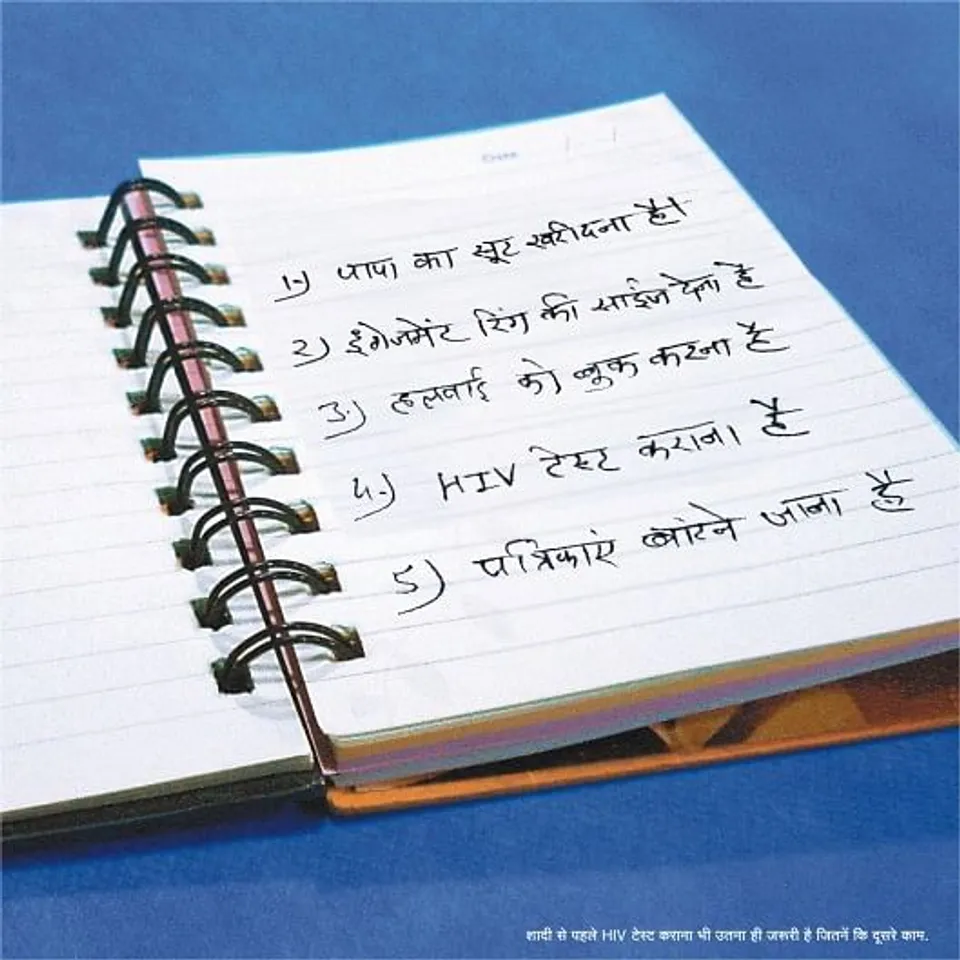 Date
1-) पापा का सूट खरीदना है।
2) इंगेजमेंट रिंग की साईज देना है
3-) हलवाई को बुक करना है
4-) HIV टेस्ट कराना है
5) पत्रिकाएं बांटने जाना है
शादी से पहले HIV टेस्ट कराना भी उतना ही जरूरी है जितनें कि दूसरे काम.